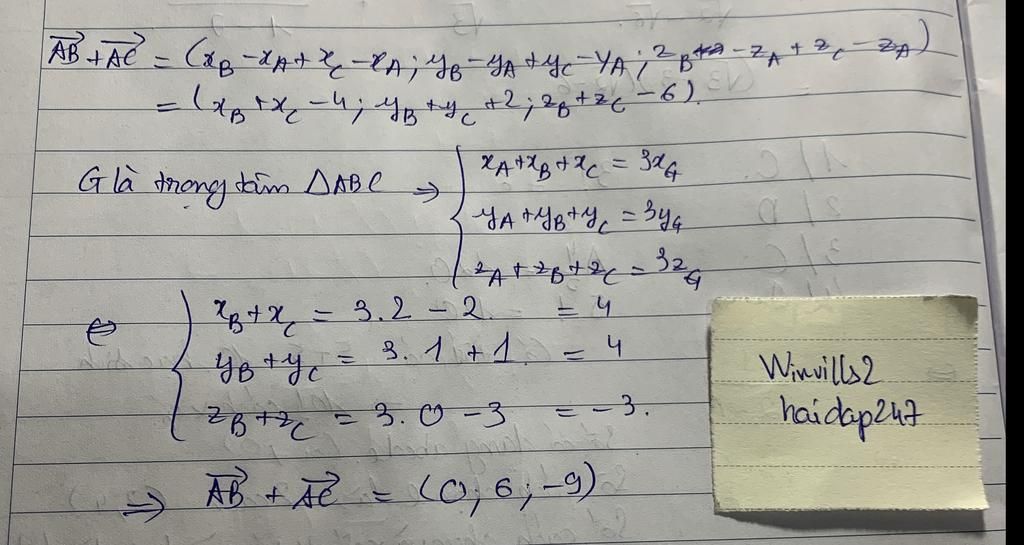 AB→ + AC→ = (x_B - x_A + x_C - x_A ; y_B - y_A + y_C - y_A ; z_B - z_A + z_C - z_A)
= (x_B + x_C - 4 ; y_B + y_C + 2 ; z_B + z_C - 6).
G là trọng tâm △ABC ⇒ { x_A + x_B + x_C = 3x_G
y_A + y_B + y_C = 3y_G
z_A + z_B + z_C = 3z_G
⇔ { x_B + x_C = 3.2 - 2 = 4
y_B + y_C = 3.1 + 1 = 4
z_B + z_C = 3.0 - 3 = -3.
⇒ AB→ + AC→ = (0 ; 6 ; -9)
Winvills2
haidap247